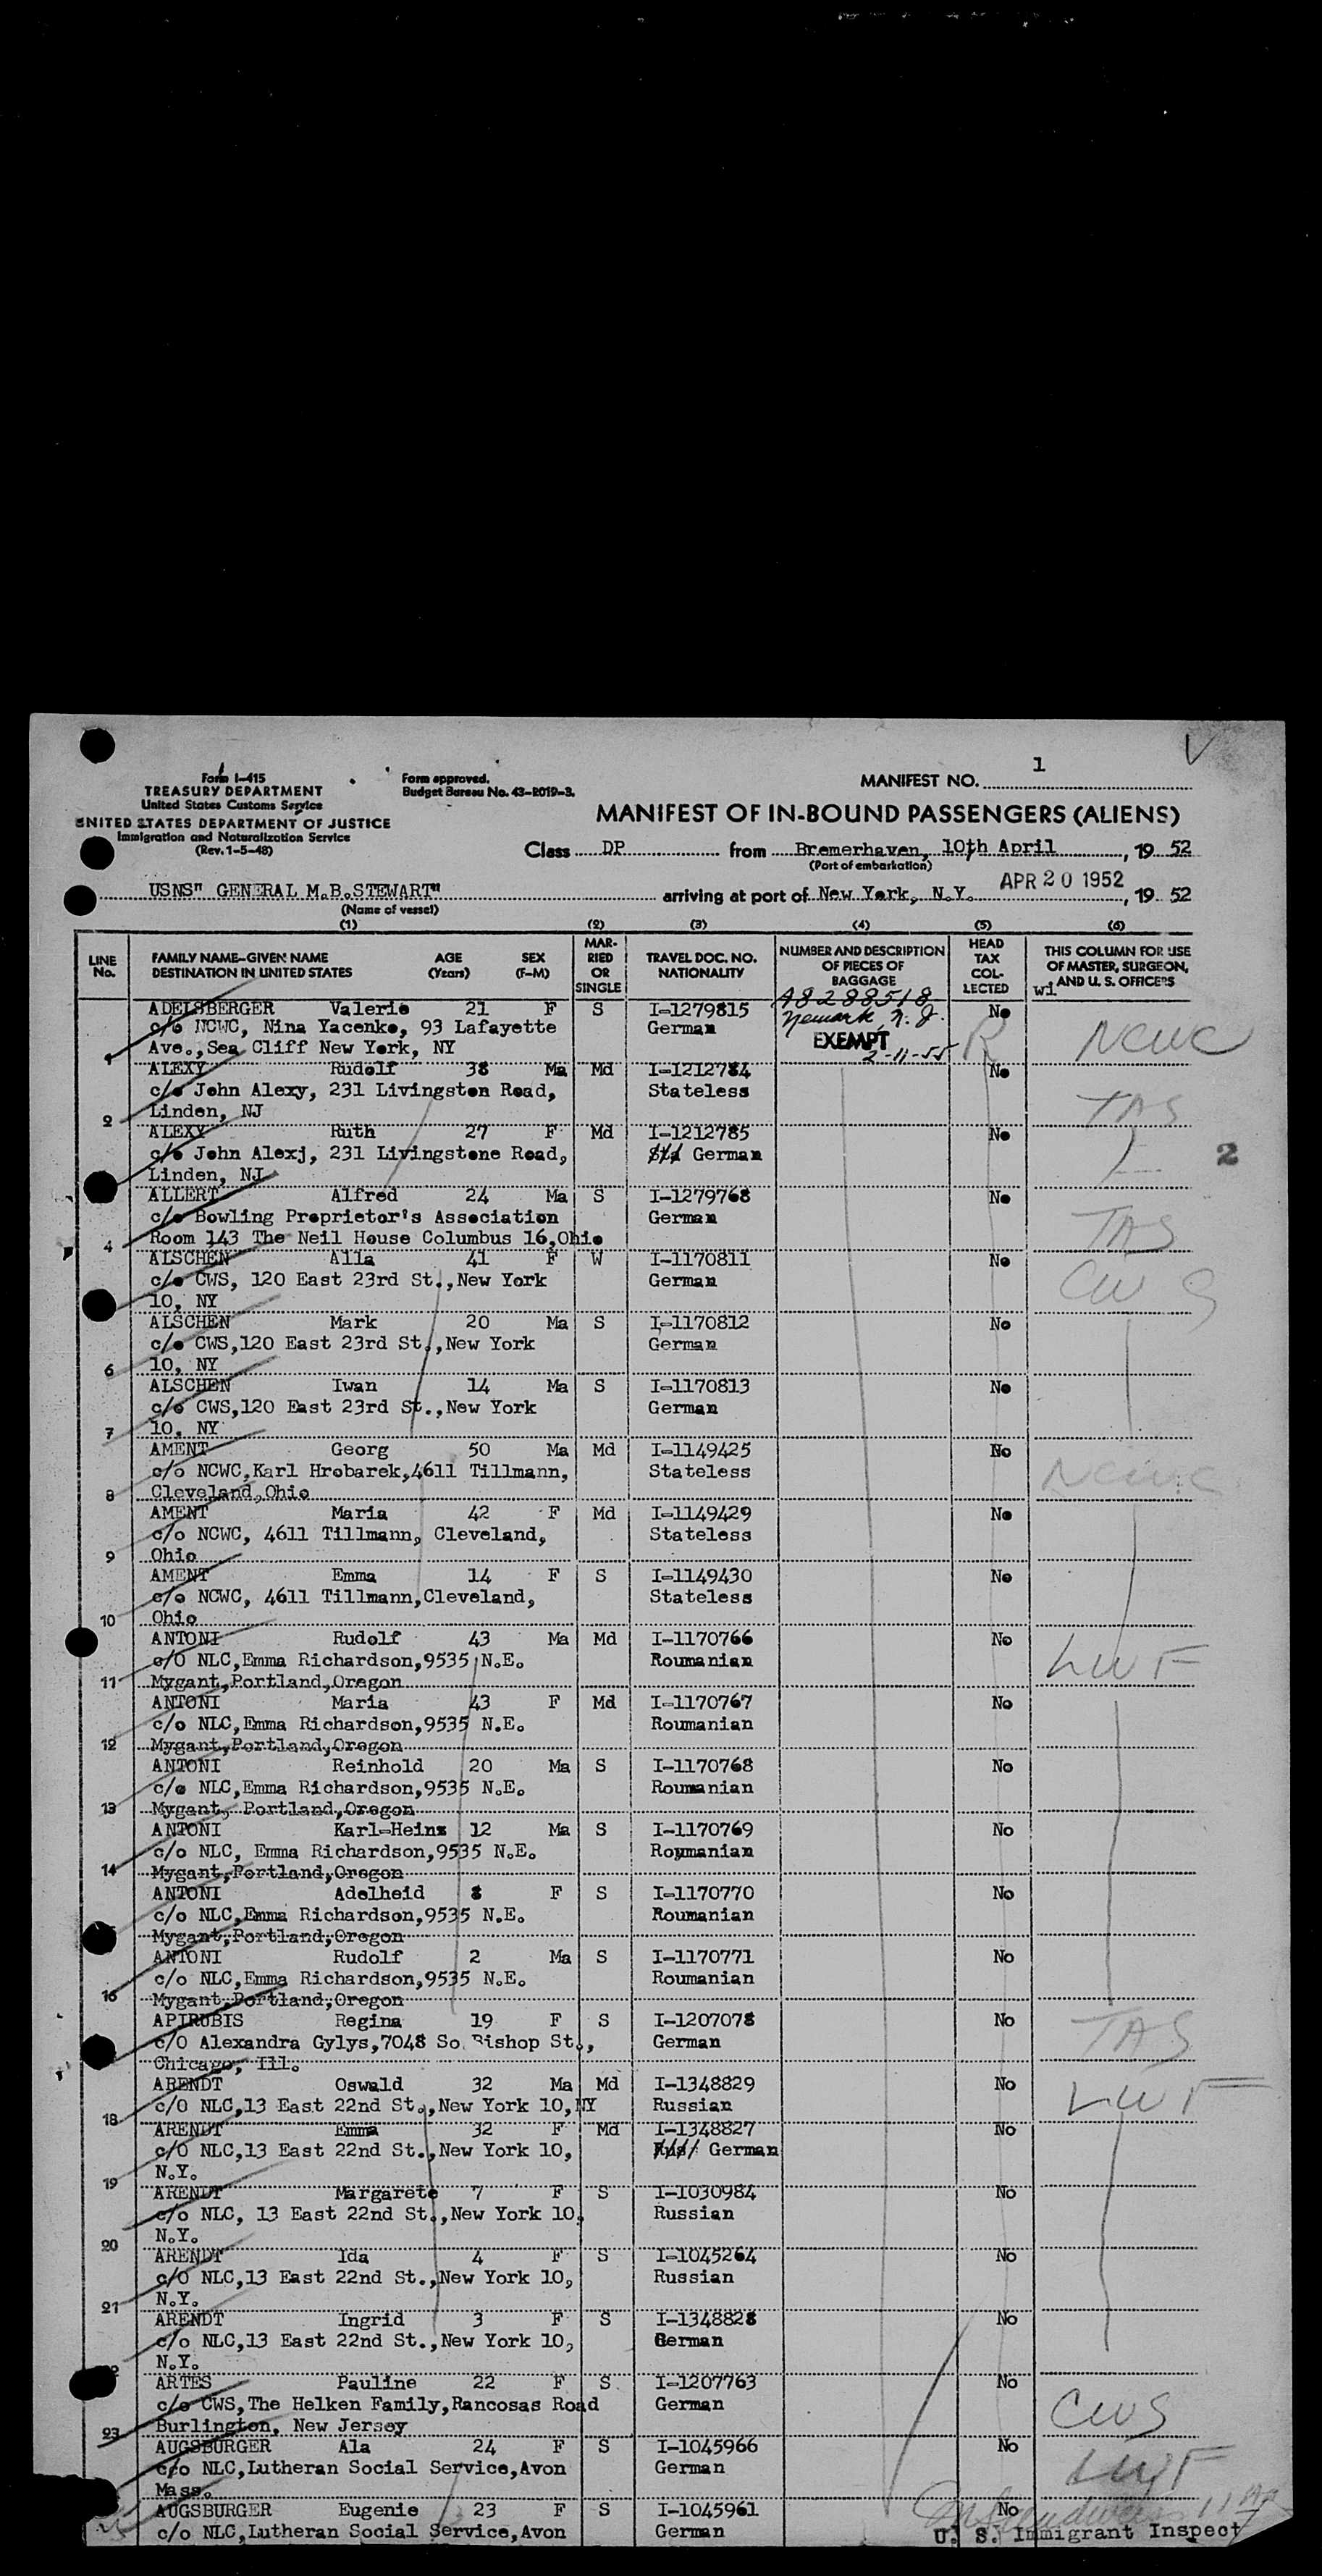 V
Form I-415
TREASURY DEPARTMENT
United States Customs Service
UNITED STATES DEPARTMENT OF JUSTICE
Immigration and Naturalization Service
(Rev. 1-5-48)
Form approved.
Budget Bureau No. 43-R019-3.
MANIFEST NO. 1
MANIFEST OF IN-BOUND PASSENGERS (ALIENS)
Class DP from Bremerhaven, 10th April, 19 52
(Port of embarkation)
USNS" GENERAL M.B.STEWART" arriving at port of New York, N.Y. APR 20 1952, 19 52
(Name of vessel)
(1) (2) (3) (4) (5) (6)
LINE No. FAMILY NAME–GIVEN NAME DESTINATION IN UNITED STATES AGE (Years) SEX (F–M) MAR-RIED OR SINGLE TRAVEL DOC. NO. NATIONALITY NUMBER AND DESCRIPTION OF PIECES OF BAGGAGE HEAD TAX COL-LECTED THIS COLUMN FOR USE OF MASTER, SURGEON, AND U. S. OFFICERS
wi
ADELSBERGER Valerie 21 F S I-1279815 A8288518 No
c/o NCWC, Nina Yacenko, 93 Lafayette German Newark, N.J. R NCWC
1 Ave.,Sea Cliff New York, NY EXEMPT 2-11-55
ALEXY Rudolf 38 Ma Md I-1212784 No
c/o John Alexy, 231 Livingston Road, Stateless TAS
2 Linden, NJ
ALEXY Ruth 27 F Md I-1212785 No
c/o John Alexj, 231 Livingstone Road, Sta German 2
Linden, NJ
ALLERT Alfred 24 Ma S I-1279768 No
c/o Bowling Proprietor's Association German TAS
4 Room 143 The Neil House Columbus 16,Ohio
ALSCHEN Alla 41 F W I-1170811 No
c/o CWS, 120 East 23rd St.,New York German CWS
10, NY
ALSCHEN Mark 20 Ma S I-1170812 No
c/o CWS,120 East 23rd St.,New York German
6 10, NY
ALSCHEN Iwan 14 Ma S I-1170813 No
c/o CWS,120 East 23rd St.,New York German
7 10, NY
AMENT Georg 50 Ma Md I-1149425 No
c/o NCWC,Karl Hrobarek,4611 Tillmann, Stateless NCWC
8 Cleveland,Ohio
AMENT Maria 42 F Md I-1149429 No
c/o NCWC, 4611 Tillmann, Cleveland, Stateless
9 Ohio
AMENT Emma 14 F S I-1149430 No
c/o NCWC, 4611 Tillmann,Cleveland, Stateless
10 Ohio
ANTONI Rudolf 43 Ma Md I-1170766 No
c/O NLC,Emma Richardson,9535 N.E. Roumanian LWF
11 Mygant,Portland,Oregon
ANTONI Maria 43 F Md I-1170767 No
c/o NLC,Emma Richardson,9535 N.E. Roumanian
12 Mygant,Portland,Oregon
ANTONI Reinhold 20 Ma S I-1170768 No
c/o NLC,Emma Richardson,9535 N.E. Roumanian
13 Mygant, Portland,Oregon
ANTONI Karl-Heinz 12 Ma S I-1170769 No
c/o NLC, Emma Richardson,9535 N.E. Roymanian
14 Mygant,Portland,Oregon
ANTONI Adelheid 8 F S I-1170770 No
c/o NLC,Emma Richardson,9535 N.E. Roumanian
Mygant,Portland,Oregon
ANTONI Rudolf 2 Ma S I-1170771 No
c/o NLC,Emma Richardson,9535 N.E. Roumanian
16 Mygant,Portland,Oregon
APIRUBIS Regina 19 F S I-1207078 No
c/O Alexandra Gylys,7048 So.Bishop St., German TAS
Chicago, Ill.
ARENDT Oswald 32 Ma Md I-1348829 No
18 c/O NLC,13 East 22nd St.,New York 10,NY Russian LWF
ARENDT Emma 32 F Md I-1348827 No
c/O NLC,13 East 22nd St.,New York 10, Rus German
19 N.Y.
ARENDT Margarete 7 F S I-1030984 No
c/o NLC, 13 East 22nd St.,New York 10, Russian
20 N.Y.
ARENDT Ida 4 F S I-1045264 No
c/O NLC,13 East 22nd St.,New York 10, Russian
21 N.Y.
ARENDT Ingrid 3 F S I-1348828 No
c/o NLC,13 East 22nd St.,New York 10, German
N.Y.
ARTES Pauline 22 F S I-1207763 No
c/o CWS,The Helken Family,Rancosas Road German CWS
23 Burlington, New Jersey
AUGSBURGER Ala 24 F S I-1045966 No
c/o NLC,Lutheran Social Service,Avon German LWF
Mass.
AUGSBURGER Eugenie 23 F S I-1045961 No
c/o NLC,Lutheran Social Service,Avon German U. S. Immigrant Inspect